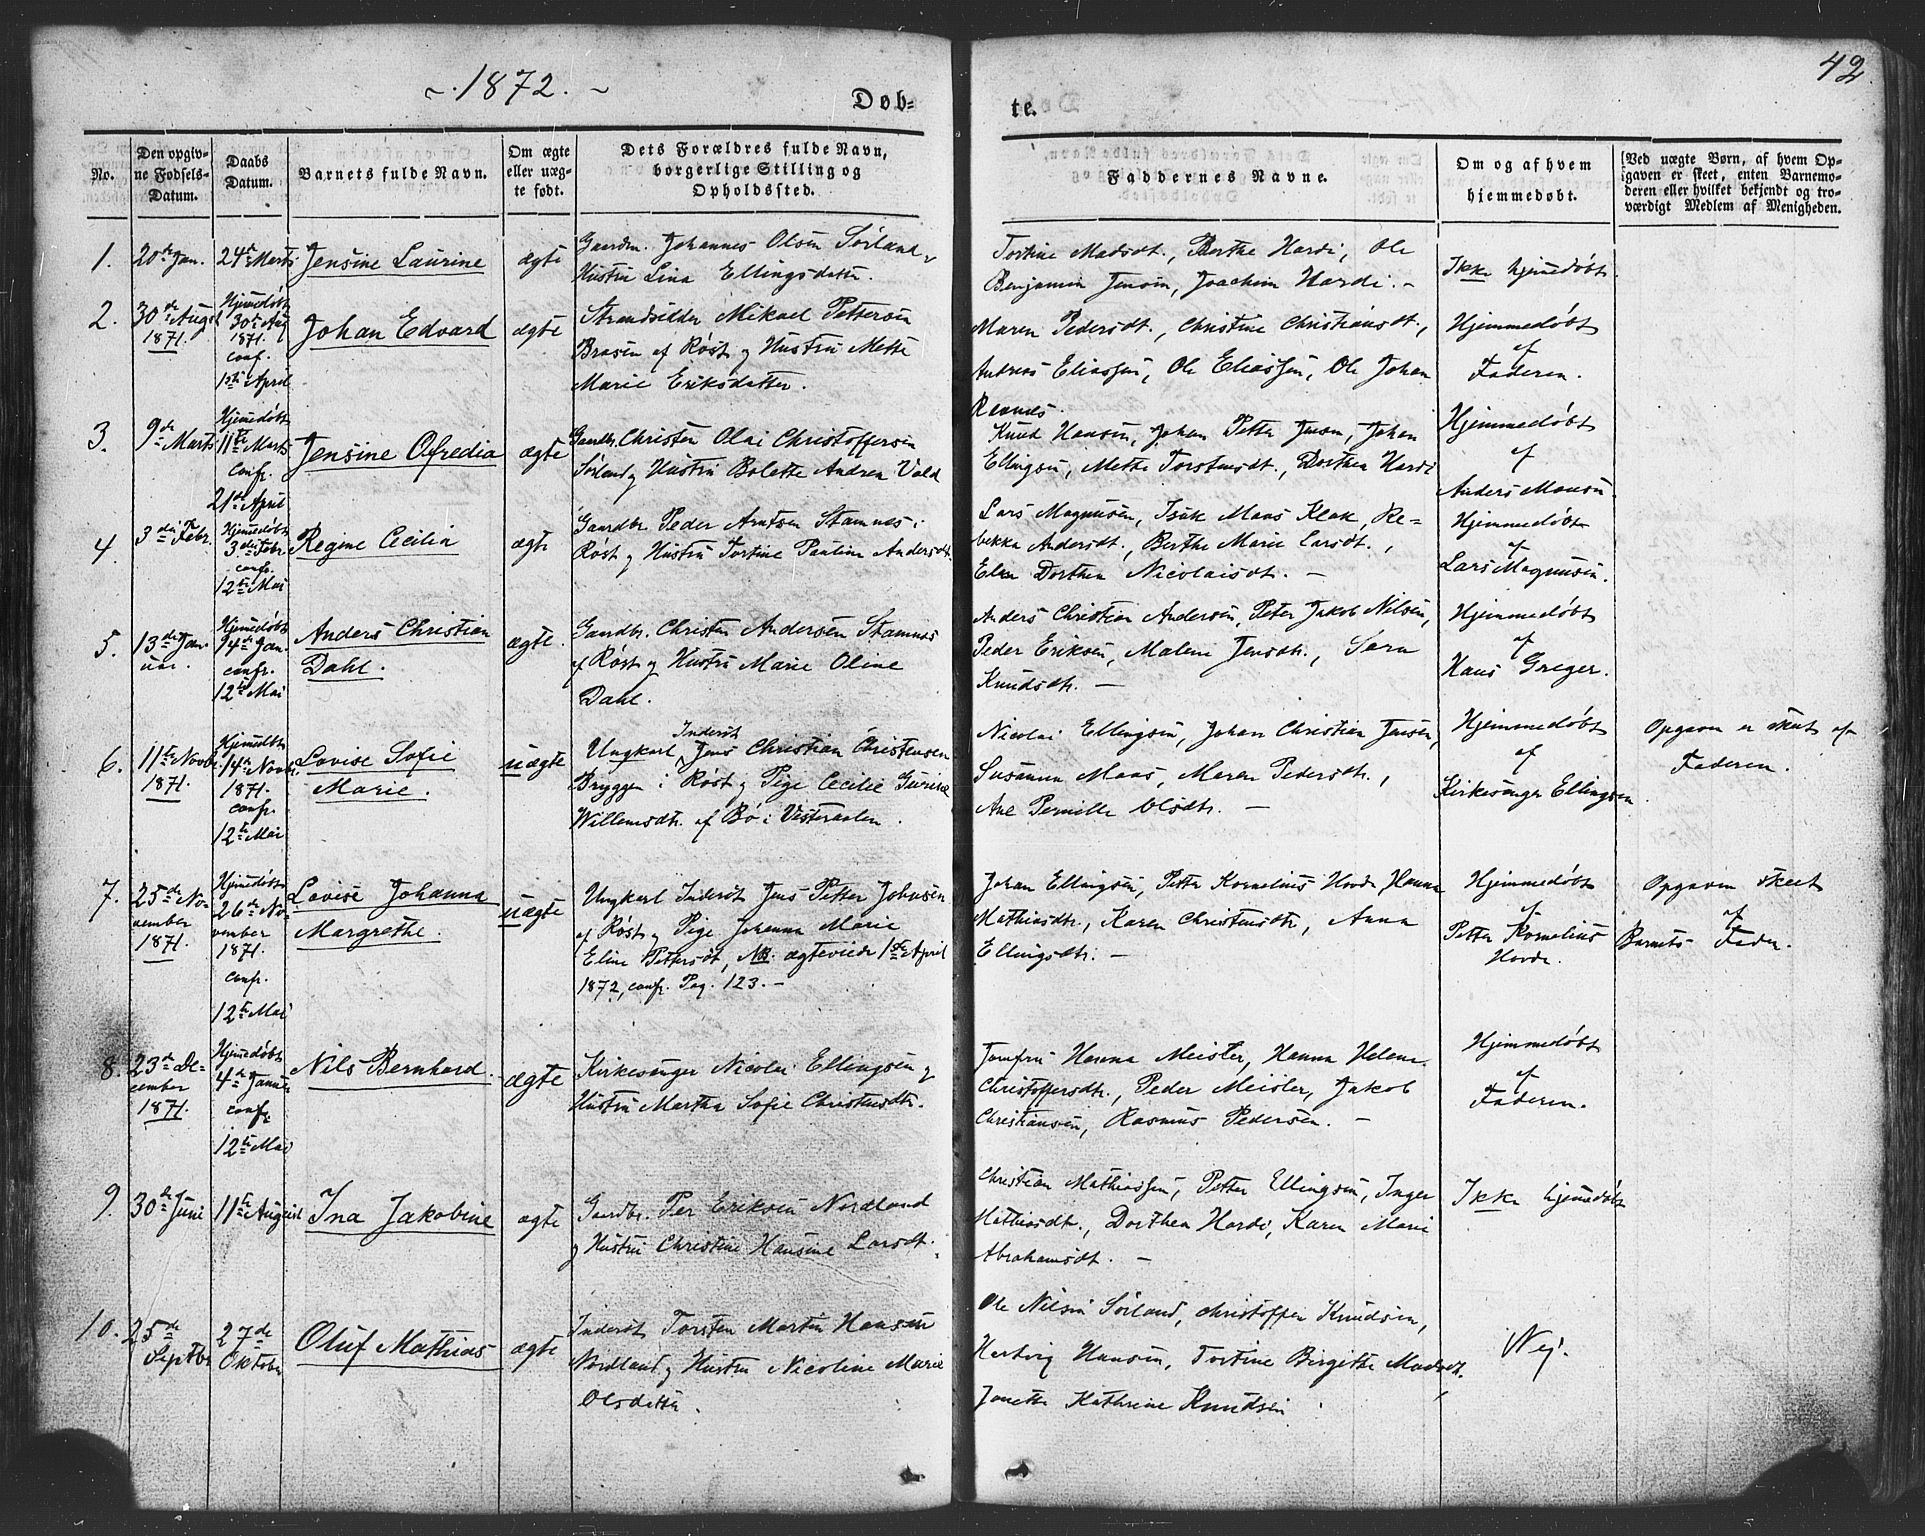 ~. 1872. ~
42.
Døb-
te.
No.
Den opgiv-
ne Fødsels-
Datum.
Daabs
Datum.
Barnets fulde Navn.
Om ægte
eller uæg-
te født.
Dets Forældres fulde Navn,
borgerlige Stilling og
Opholdssted.
Faddernes Navne.
Om og af hvem
hjemmedøbt.
Ved uægte Børn, af hvem Op-
gaven er skeet, enten Barnemo-
deren eller hvilket bekjendt og tro-
værdigt Medlem af Menigheden.
1.
20de Jan.
24de Marts
Jensine Laurine
ægte
Gaardm. Johannes Olsen Sørland,
Hustru Lina Ellingsdatter.
Tortine Madsdt., Berthe Hardi, Ole
Benjamin Jensen, Joachim Hardi. -
Ikke hjemedøbt.
2.
30de August
1871.
Hjemedøbt
30te Aug
1871.
conf.
1ste April
Johan Edvard
ægte
Strandsidder Mikael Pettersen
Brasen af Røst og Hustru Mette
Marie Eriksdatter.
Maren Pedersdt., Christine Christiansdt.,
Andreas Eliassen, Ole Eliassen, Ole Johan
Ravnes.
Hjemmedøbt
af
Faderen.
3.
9de Marts
Hjemedøbt
11te Marts
confr.
21de April
Jensine Olfredia
ægte
Gaardbr. Christen Olai Christoffersen
Sørland og Hustru Bolette Andrea Vold
Knud Hansen, Johan Petter Jensen, Johan
Ellingsen, Mette Torstensdt., Dorthea Hardi
Hjemmedøbt
af
Anders Monsen
4.
3die Febr.
Hjemedøbt
3die Febr.
confr.
12te Mai
Regine Cecilia
ægte
Gaardbr. Peder Arntsen Stamnes i
Røst og Hustru Tortine Pauline Andersdt.
Lars Magnusen, Isak Maas Klak, Re-
bekka Andersdt., Berthe Marie Larsdt.,
Elen Dorthea Nicolaisdt. -
Hjemmedøbt
af
Lars Magnusen.
5.
13de Jan-
uar.
Hjemedøbt
14de Jan
confr.
12te Mai
Anders Christian
Dahl.
ægte.
Gaardbr. Christen Andersen Stamnes
af Røst og Hustru Marie Oline
Dahl.
Anders Christian Andersen, Peter Jakob Nilsen,
Peder Eriksen, Malene Jensdtr., Sara
Knudsdtr. -
Hjemmedøbt
af
Hans Greger.
6.
11te Novbr.
1871.
Hjemedbt
14de Novbr.
1871.
confr.
12te Mai
Lovise Sofie
Marie.
uægte
Inderst
Ungkarl Jens Christian Christensen
Bryggen i Røst og Pige Cecilie Gurine
Willemsdtr. af Bø i Vesteraalen.
Nicolai Ellingsen, Johan Christian Jensen,
Susanna Maas, Maren Pedersdtr.,
Ane Pernille Olsdtr. -
Hjemmedøbt
af
Kirkesanger Ellingsen
Opgaven er skeet af
Faderen.
7.
25de No-
vember
1871.
Hjemedøbt
26de No-
vember
1871.
confr.
12te Mai
Lovise Johanna
Margrethe.
uægte
Ungkarl Inderst Jens Petter Johnsen
af Røst og Pige Johanna Marie
Eline Pettersdt, NB. ægteviede 1ste April
1872, confr. Pag. 123. -
Johan Ellingsen, Petter Kornelius Hovde, Hanna
Mathiasdtr., Karen Christensdtr., Anna
Ellingsdtr. -
Hjemmedøbt
af
Petter Kornelius
Hovde.
Opgaven skeet
af
Barnets Fader.
8.
23de De-
cember
1871.
Hjemedøbt
4de Januar
confr
12te Mai
Nils Bernhard.
ægte
Kirkesanger Nicolai Ellingsen og
Hustru Martha Sofie Christensdtr.
Jomfru Hanna Meisler, Hanna Helena
Christoffersdtr., Peder Meisler, Jakob
Christiansen, Rasmus Pedersen. -
Hjemmedøbt
af
Faderen.
9.
30de Juni
11te August
Ina Jakobine
ægte
Gaardbr. Per Eriksen Nordland
og Hustru Christine Hansine Larsdt.
Christian Mathiassen, Petter Ellingsen, Inger
Mathiasdt., Dorthea Hardi, Karen Marie
Abrahamsdt. -
Ikke hjemedøbt
10.
25de
Septbr
27de
Oktober
Oluf Mathias
ægte
Inderst Torsten Martin Hansen
Nordland og Hustru Nicoline Marie
Olsdatter.
Ole Nilsen Sørland, Christoffer Knudsen,
Hertvig Hansen, Tortine Birgitte Madsdt.,
Jonetta Kathrine Knudsen.
Nej.